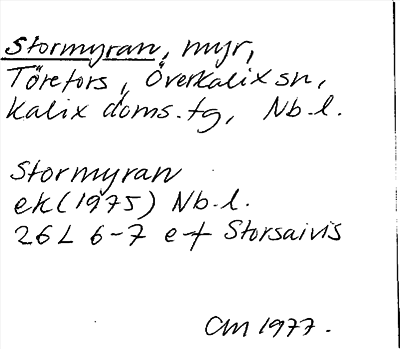 Stormyran, myr,
Törefors, Överkalix sn,
Kalix doms.tg, Nb.l.
Stormyran
ek (1975) Nb.l.
26L 6-7 e-f Storsaivis
CM 1977.